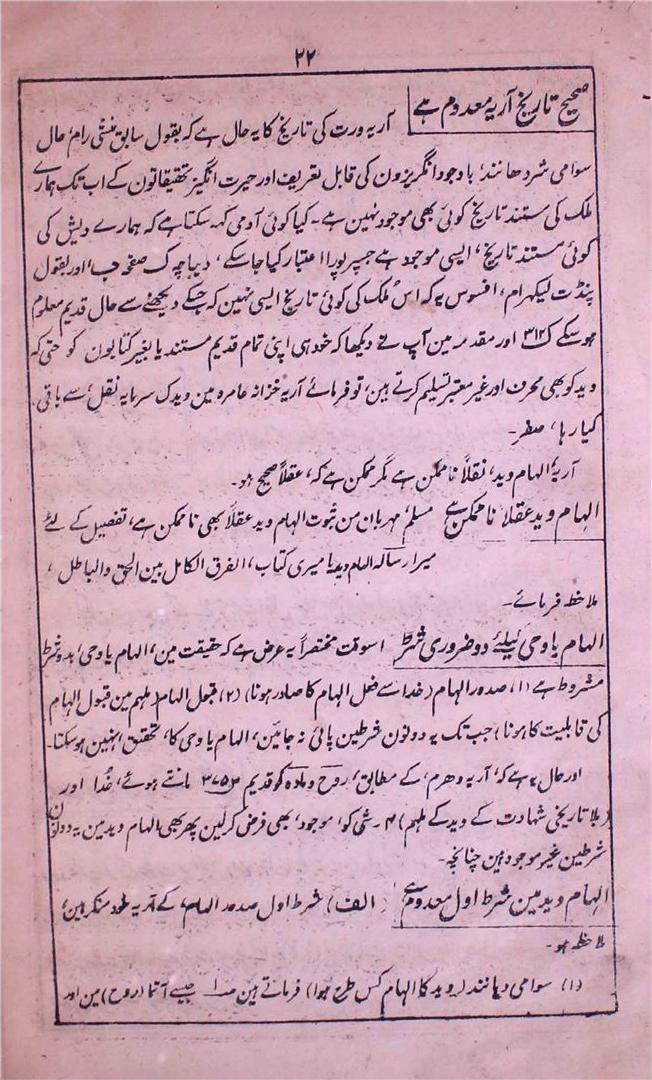 ۳۲
صحیح تاریخ آریہ معدوم ہے
آریہ ورت کی تاریخ کا یہ حال ہے کہ بقول سابق منشی رام، حال
سوامی شردھانند، باوجود انگریزون کی قابل تعریف اور حیرت انگیز تحقیقاتون کے اب تک ہمارے
ملک کی مستند تاریخ کوئی بھی موجود نہین ہے۔ کیا کوئی آدمی کہہ سکتا ہے کہ ہمارے دیش کی
کوئی مستند تاریخ، ایسی موجود ہے جسپر پورا اعتبار کیا جا سکے، دیباچہ ک صفحہ ب، اور بقول
پنڈت لیکھرام، افسوس یہ کہ اس ملک کی کوئی تاریخ ایسی نہین کہ جسکے دیکھنے سے حال قدیم معلوم
ہو سکے ک ۳۱۲ اور مقدمہ مین آپ نے دیکھا کہ خود ہی اپنی تمام قدیم مستند یا بغیر کتابون کو حتی کہ
وید کو بھی محرف اور غیر معتبر تسلیم کرتے ہین، تو فرمائے آریہ خزانہ عامرہ مین وید ک سرمایہ نقل، سے باقی
کیا رہا، صفر۔
آریہ، الہام وید، نقلاً ناممکن ہے مگر ممکن ہے کہ، عقلاً صحیح ہو۔
الہام وید عقلاً ناممکن ہے مسلم، مہربان من ثبوت الہام وید عقلاً بھی ناممکن ہے، تفصیل کے لئے
میرا رسالہ الہام وید یا میری کتاب، الفرق الکامل بین الحق والباطل،
ملاحظہ فرمائے۔
الہام یا وحی کیلئے دو ضروری شرط اسوقت مختصراً یہ عرض ہے کہ حقیقت مین، الہام یا وحی، بدو شرط
مشروط ہے (۱) صدور الہام (خدا سے فعل الہام کا صادر ہونا) (۲) قبول الہام (ملہم مین قبول الہام
کی قابلیت کا ہونا) جب تک یہ دونون شرطین پائی نہ جائین، الہام یا وحی کا، تحقق نہین ہوسکتا۔
اور حال یہ ہے کہ، آریہ دھرم، کے مطابق، روح و مادہ کو قدیم ص ۳۷۵ مانتے ہوئے، خُدا اور
(بلا تاریخی شہادت کے وید کے ملہم) ۴۔ رشی کو، موجود، بھی فرض کرلین پھر بھی، الہام وید مین یہ دونون
شرطین غیر موجود ہین چنانچہ۔
الہام وید مین شرط اول معدوم ہے (الف) شرط اول صدور الہام، کے آریہ خود منکر ہین،
ملاحظہ ہو۔
(۱) سوامی دیانند (وید کا الہام کس طرح ہوا) فرماتے ہین جیسے آتما (روح) مین اور